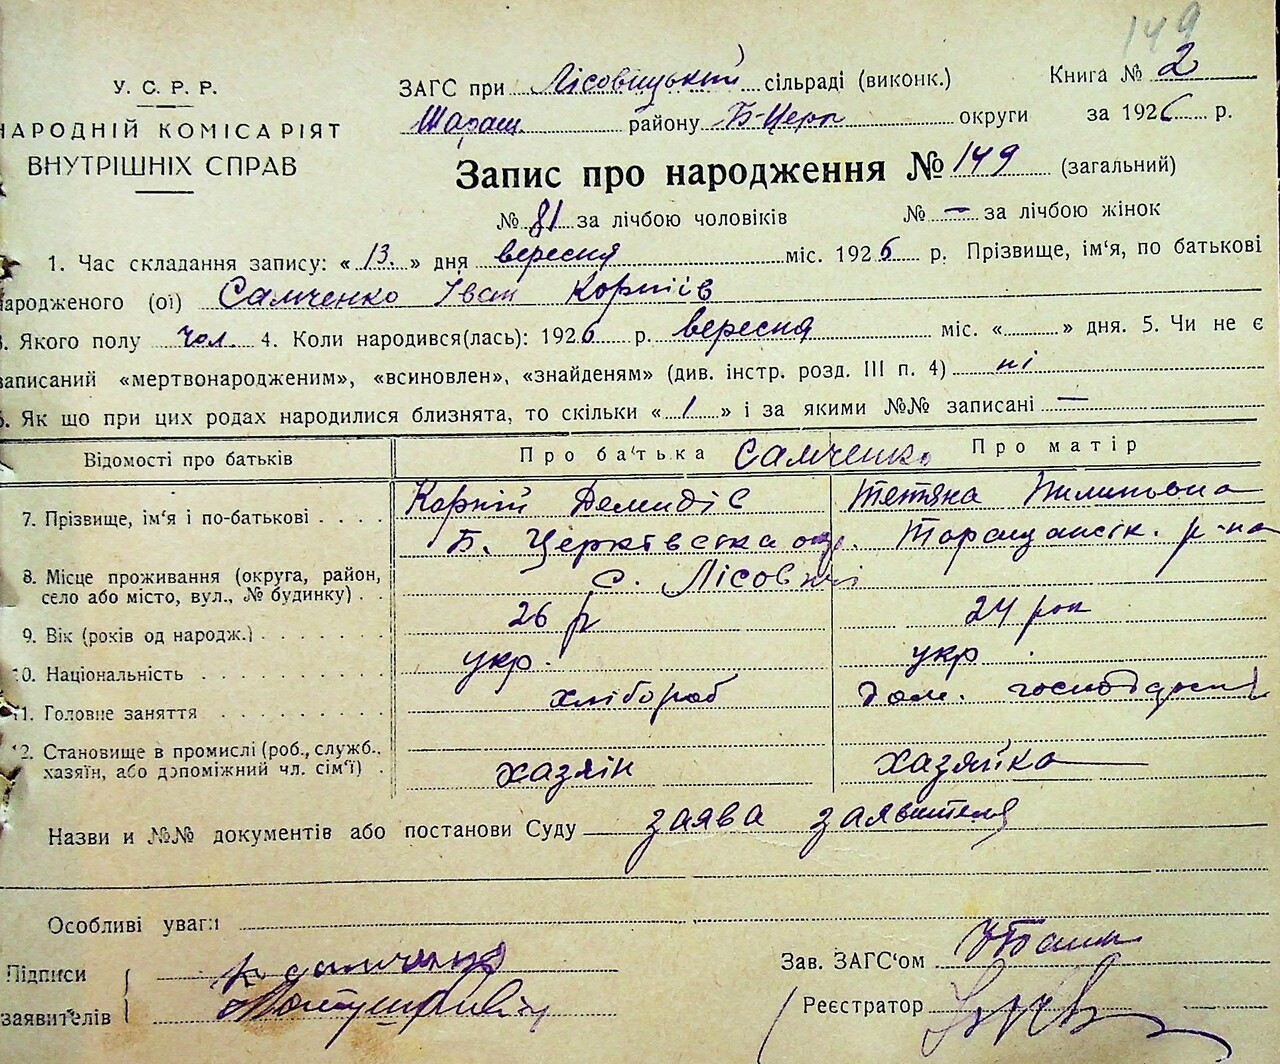 149
У. С. Р. Р.
НАРОДНІЙ КОМІСАРІЯТ
ВНУТРІШНІХ СПРАВ
ЗАГС при Лісовицькій сільраді (виконк.) Книга № 2
Таращ. району Б-Церк округи за 1926 р.
Запис про народження № 149 (загальний)
№ 81 за лічбою чоловіків № — за лічбою жінок
1. Час складання запису: « 13. » дня вересня міс. 1926 р. Прізвище, ім‘я, по батькові
народженого (ої) Самченко Іван Корніїв
3. Якого полу чол. 4. Коли народився(лась): 1926 р. вересня міс. « » дня. 5. Чи не є
записаний «мертвонародженим», «всиновлен», «знайденям» (див. інстр. розд. III п. 4) ні
6. Як що при цих родах народилися близнята, то скільки « 1 » і за якими №№ записані —
Відомості про батьків Про ба‘тька Самченко Про матір
7. Прізвище, ім‘я і по-батькові Корній Демидів Тетяна Пилиповна
Б. Церківська окр. Таращанськ. р-на
8. Місце проживання (округа, район, село або місто, вул., № будинку) с. Лісовичі
9. Вік (років од народж.) 26 р 24 рок
10. Національність укр. укр
11. Головне заняття хлібороб дом. господарст
12. Становище в промислі (роб., служб., хазяїн, або дэпоміжний чл. сім‘ї) хазяїн хазяйка
Назви и №№ документів або постанови Суду заява заявителя
Особливі уваги
Підписи К Самченко
заявителів
Зав. ЗАГС‘ом
Реєстратор